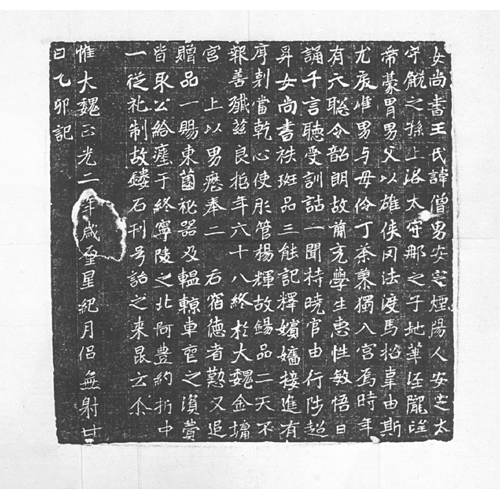 女尚書王氏諱僧男安定煙陽人安定太
守之孫上洛太守那之子地華涇隴望
帝豪胄男父以雄俠罔法渡馬招辜由斯
尤戾唯男与母伶丁荼蓼獨入宮焉時年
有六聰令韶朗故簡充學生惠性敏悟日
誦千言聽受訓詁一聞持曉官由行陟超
昇女尚書秩班品三能記釋嬪嬙接進有
序剋當乾心使彤管楊輝故錫品二天不
報善殲茲良年六十八終於大魏金墉
宮 上以男歷奉二 后宿德者懃又追
贈品一賜東園秘器及轀輬車之資費
皆取公給瘞于終寧陵之北阿豊約折中
一從礼制故鐫石刊号詒之来昆云尒
惟大魏正光二年歲星紀月侶無射廿
日乙卯記